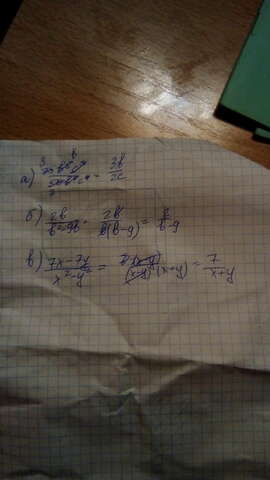 а) = 3b/2c
б) 2b/b²-9b = 2b/b(b-9) = 2/b-9
в) 7x-7y/x²-y² = 7(x-y)/(x-y)(x+y) = 7/x+y